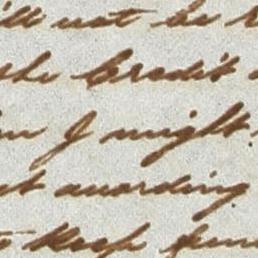 ill not be
the Credit
I might
according
to keep